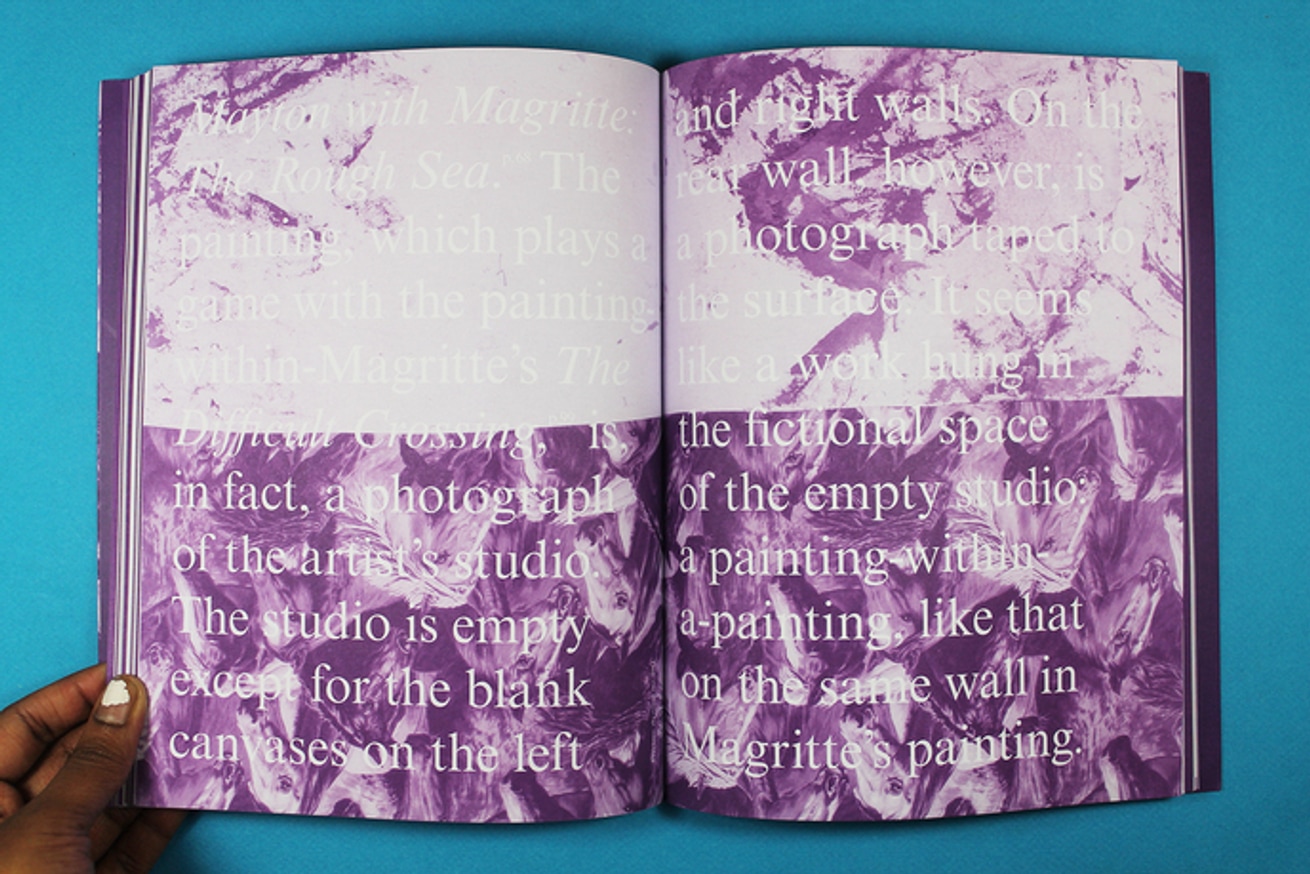 Mayton with Magritte:
The Rough Sea. p.68 The
painting, which plays a
game with the painting-
within-Magritte's The
Difficult Crossing, is,
in fact, a photograph
of the artist's studio.
The studio is empty
except for the blank
canvases on the left
and right walls. On the
rear wall, however, is
a photograph taped to
the surface. It seems
like a work hung in
the fictional space
of the empty studio:
a painting-within-
a-painting, like that
on the same wall in
Magritte's painting.